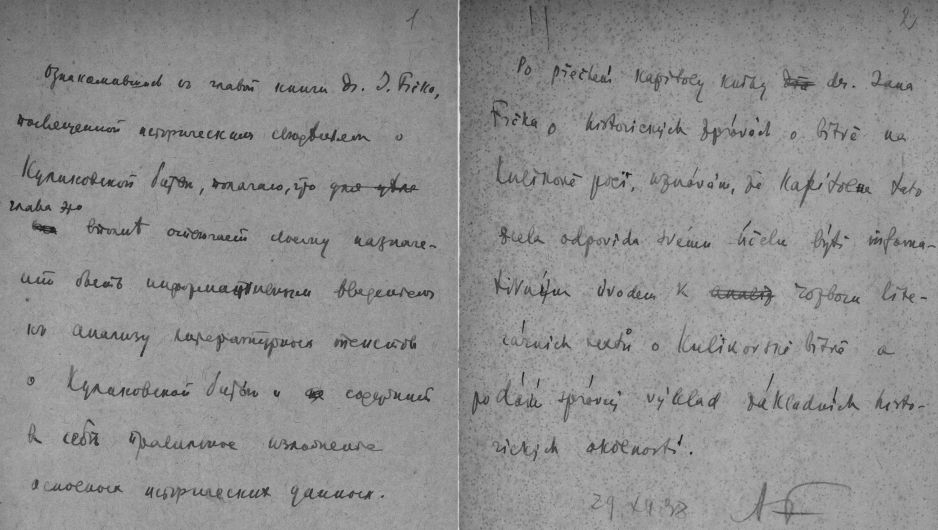 1
Ознакомившись съ главой книги Dr. J. Frčka,
посвященной историческимъ сведѣніямъ о
Куликовской битвѣ, полагаю, что
глава эта
вполнѣ отвѣчаетъ своему назначе-
нію быть информативнымъ введеніемъ
къ анализу литературныхъ текстовъ
о Куликовской битвѣ и содержитъ
въ себѣ правильное изложеніе
основныхъ историческихъ данныхъ.
2
Po přečtení kapitoly knihy dra. Jana
Frčka o historických zprávách o bitvě na
Kulikově poli, uznávám, že kapitola tato
zcela odpovídá svému účelu býti informa-
tivním úvodem k analiz rozboru lite-
rárních textů o Kulikovské bitvě a
podává správný výklad základních histo-
rických okolností.
29 XII 38